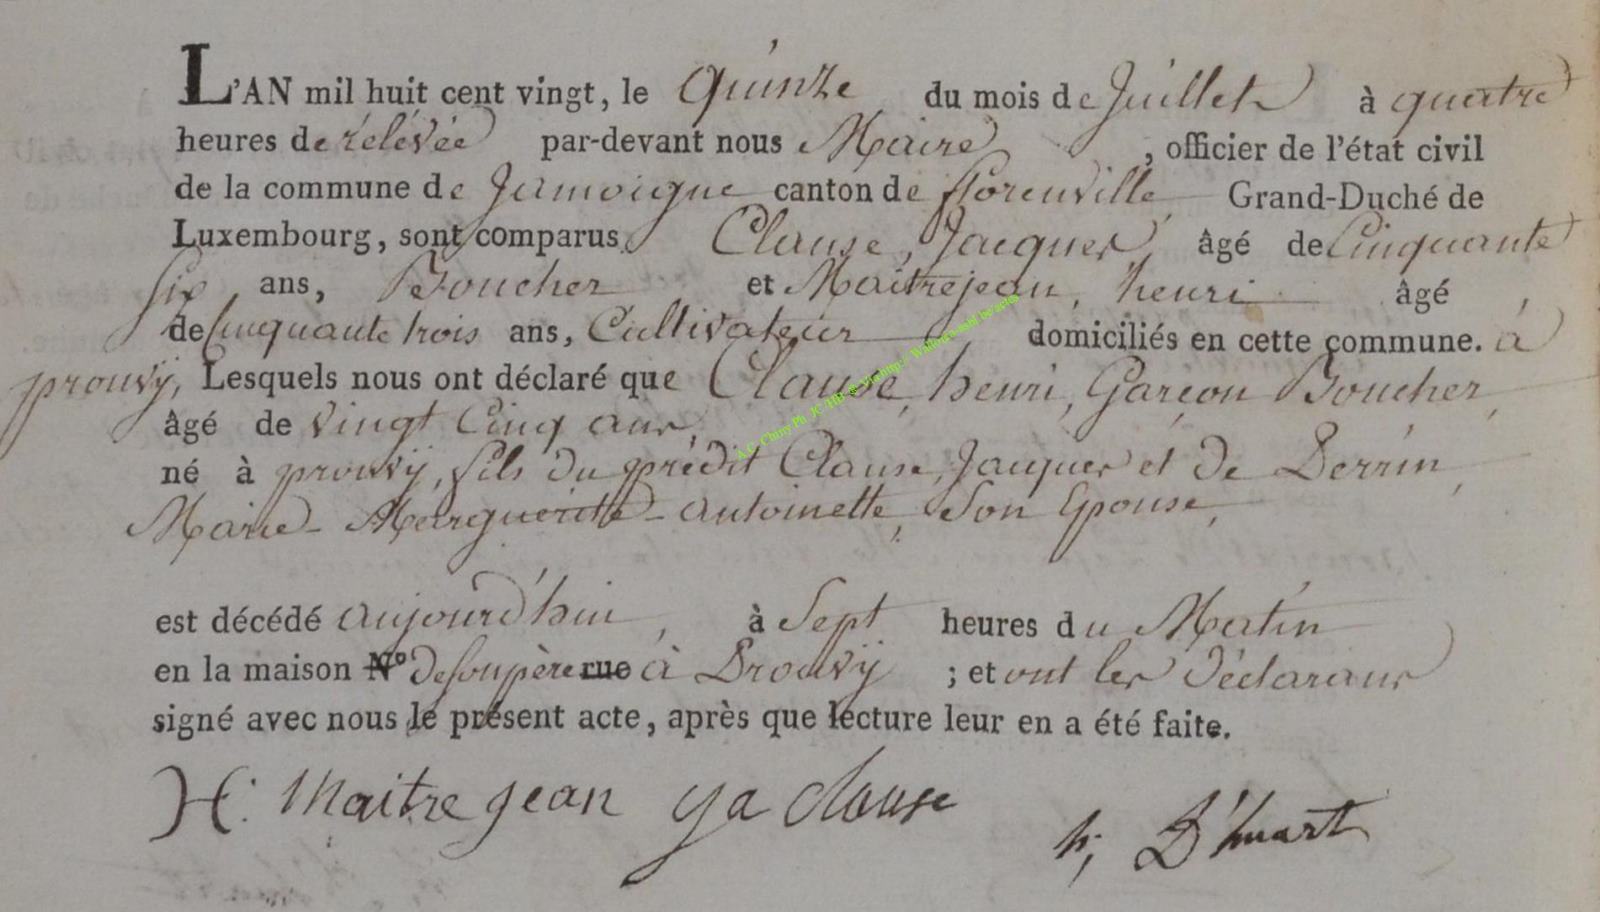 L'AN mil huit cent vingt, le Quinze du mois de Juillet à quatre
heures de rélévée par-devant nous Maire, officier de l'état civil
de la commune de Jamoigne canton de florenville Grand-Duché de
Luxembourg, sont comparus Clause, Jacques, âgé de Cinquante
Six ans, Boucher et Maitrejean, henri âgé
de Cinquante trois ans, Cultivateur domiciliés en cette commune. à
prouvy, Lesquels nous ont déclaré que Clause, henri, Garçon Boucher,
âgé de vingt Cinq ans,
né à prouvy, fils du prédit Clause, Jacques et de Perrin,
Marie-Marguerite-Antoinette, Son Epouse,
est décédé aujourd'hui, à Sept heures du Matin
en la maison N° de son père rue à Prouvy ; et ont les déclarans
signé avec nous le présent acte, après que lecture leur en a été faite.
H: Maitre jean ja clause
h; D'huart